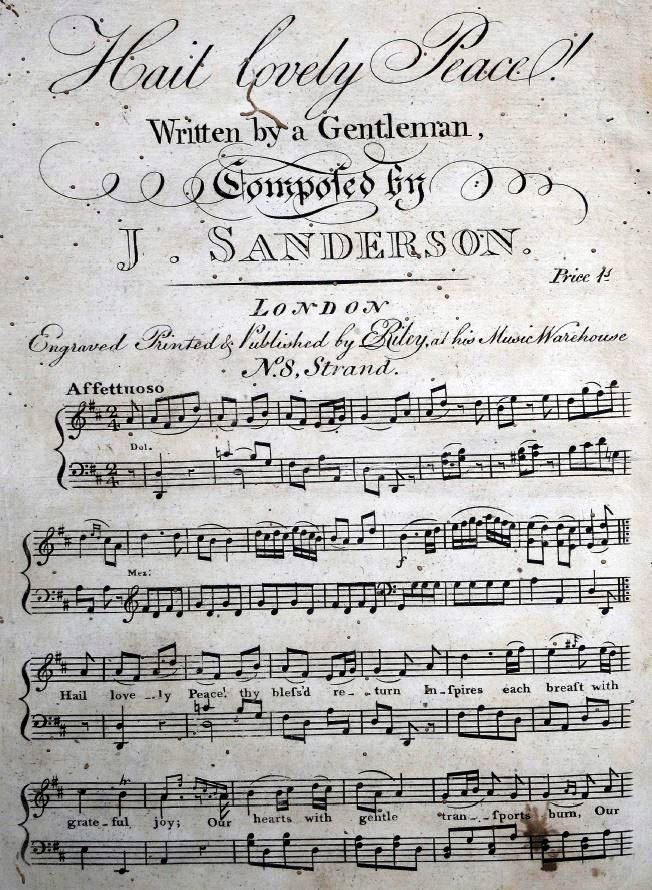 Hail lovely Peace!
Written by a Gentleman,
Compoſed by
J. SANDERSON.
Price 1s
LONDON
Engraved Printed & Published by E Riley, at his Music Warehouse
No. 8, Strand.
Affettuoso
2/4
Dol.
2/4
Mez:
f
Hail love_ly Peace! thy bleſs'd re_turn In_ſpires each breaſt with
tr
grate_ful joy; Our hearts with gentle tran_ſports burn, Our